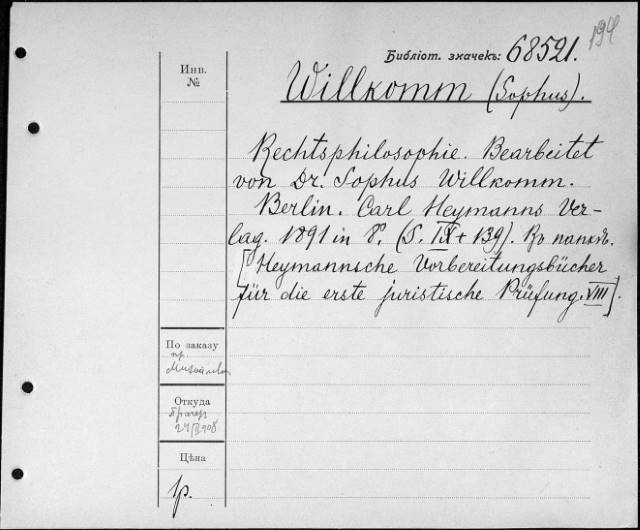 194
Библіот. значекъ: 68521.
Инв.
№
Willkomm (Sophus).
Rechtsphilosophie. Bearbeitet
von Dr. Sophus Willkomm.
Berlin. Carl Heymanns Ver-
lag. 1891 in 8°. (S. IX + 139). Въ папкѣ.
[Heymannsche Vorbereitungsbücher
für die erste juristische Prüfung. VIII].
По заказу
пр.
Откуда
Цѣна
1р.